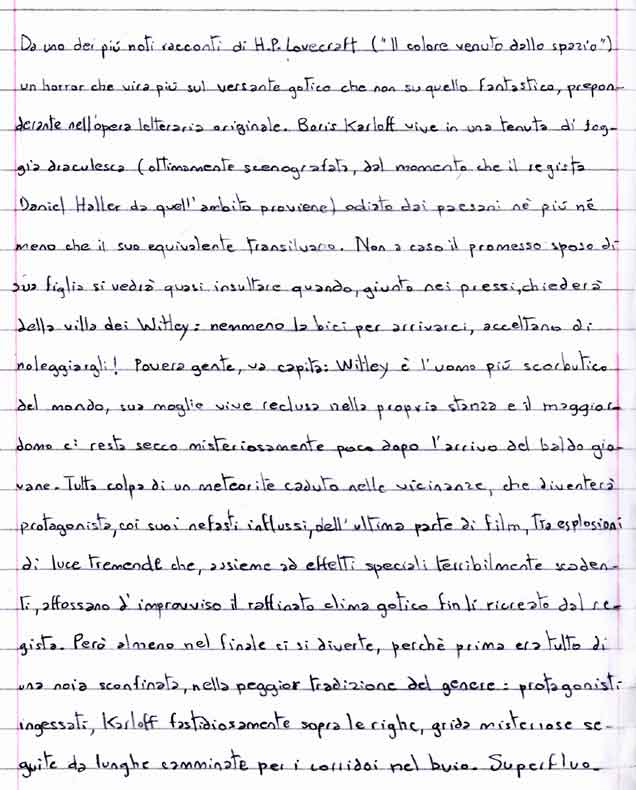 Da uno dei più noti racconti di H.P. Lovecraft ("Il colore venuto dallo spazio")
un horror che vira più sul versante gotico che non su quello fantastico, prepon-
derante nell'opera letteraria originale. Boris Karloff vive in una tenuta di fog-
gia draculesca (ottimamente scenografata, dal momento che il regista
Daniel Haller da quell'ambito proviene) odiato dai paesani nè più nè
meno che il suo equivalente transilvano. Non a caso il promesso sposo di
sua figlia si vedrà quasi insultare quando, giunto nei pressi, chiederà
della villa dei Witley: nemmeno la bici per arrivarci, accettano di
noleggiargli! Povera gente, va capita: Witley è l'uomo più scorbutico
del mondo, sua moglie vive reclusa nella propria stanza e il maggior-
domo ci resta secco misteriosamente poco dopo l'arrivo del baldo gio-
vane. Tutta colpa di un meteorite caduto nelle vicinanze, che diventerà
protagonista, coi suoi nefasti influssi, dell'ultima parte di film, tra esplosioni
di luce tremende che, assieme ad effetti speciali terribilmente scaden-
ti, affossano d'improvviso il raffinato clima gotico fin lì ricreato dal re-
gista. Però almeno nel finale ci si diverte, perchè prima era tutto di
una noia sconfinata, nella peggior tradizione del genere: protagonisti
ingessati, Karloff fastidiosamente sopra le righe, grida misteriose se-
guite da lunghe camminate per i corridoi nel buio. Superfluo.